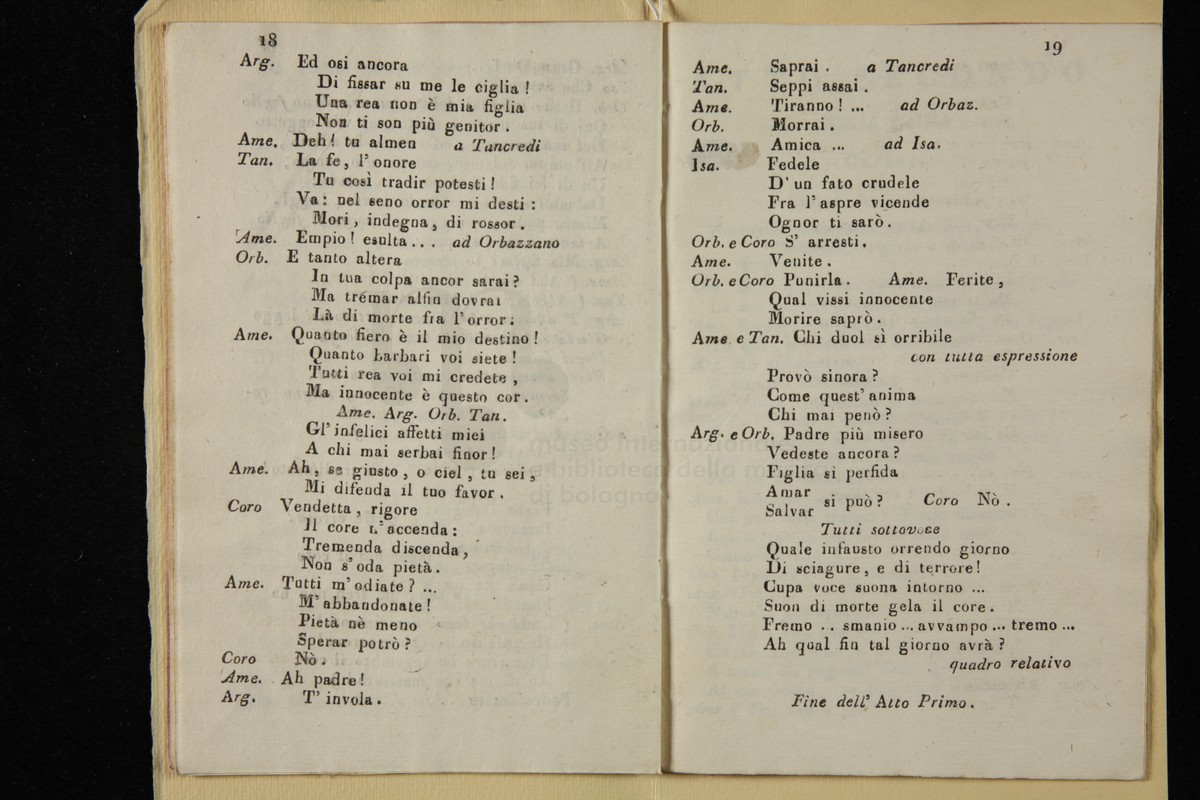 18
Arg. Ed osi ancora
Di fissar su me le ciglia !
Una rea non è mia figlia
Non ti son più genitor .
Ame. Deh! tu almen a Tancredi
Tan. La fe, l' onore
Tu così tradir potesti !
Va : nel seno orror mi desti :
Mori, indegna, di rossor .
Ame. Empio ! esulta . . . ad Orbazzano
Orb. E tanto altera
In tua colpa ancor sarai ?
Ma trémar alfin dovrai
Là di morte fra l'orror :
Ame. Quanto fiero è il mio destino !
Quanto barbari voi siete !
Tutti rea voi mi credete ,
Ma innocente è questo cor .
Ame. Arg. Orb. Tan.
Gl' infelici affetti miei
A chi mai serbai finor !
Ame. Ah, se giusto, o ciel, tu sei,
Mi difenda il tuo favor .
Coro Vendetta, rigore
Il core n'accenda :
Tremenda discenda,
Non s'oda pietà .
Ame. Tutti m'odiate ? ...
M' abbandonate !
Pietà nè meno
Sperar potrò ?
Coro Nò .
Ame. Ah padre !
Arg. T' invola .
19
Ame. Saprai . a Tancredi
Tan. Seppi assai .
Ame. Tiranno ! ... ad Orbaz.
Orb. Morrai .
Ame. Amica ... ad Isa.
Isa. Fedele
D' un fato crudele
Fra l' aspre vicende
Ognor ti sarò .
Orb. e Coro S' arresti .
Ame. Venite .
Orb. e Coro Punirla . Ame. Ferite ,
Qual vissi innocente
Morire saprò .
Ame. e Tan. Chi duol sì orribile
con tutta espressione
Provò sinora ?
Come quest' anima
Chi mai penò ?
Arg. e Orb. Padre più misero
Vedeste ancora ?
Figlia sì perfida
Amar
Salvar si può ? Coro Nò .
Tutti sottovoce
Quale infausto orrendo giorno
Di sciagure, e di terrore !
Cupa voce suona intorno ...
Suon di morte gela il core .
Fremo . . smanio ... avvampo ... tremo ...
Ah qual fin tal giorno avrà ?
quadro relativo
Fine dell' Atto Primo .
museo internazionale
e biblioteca della musica
di bologna